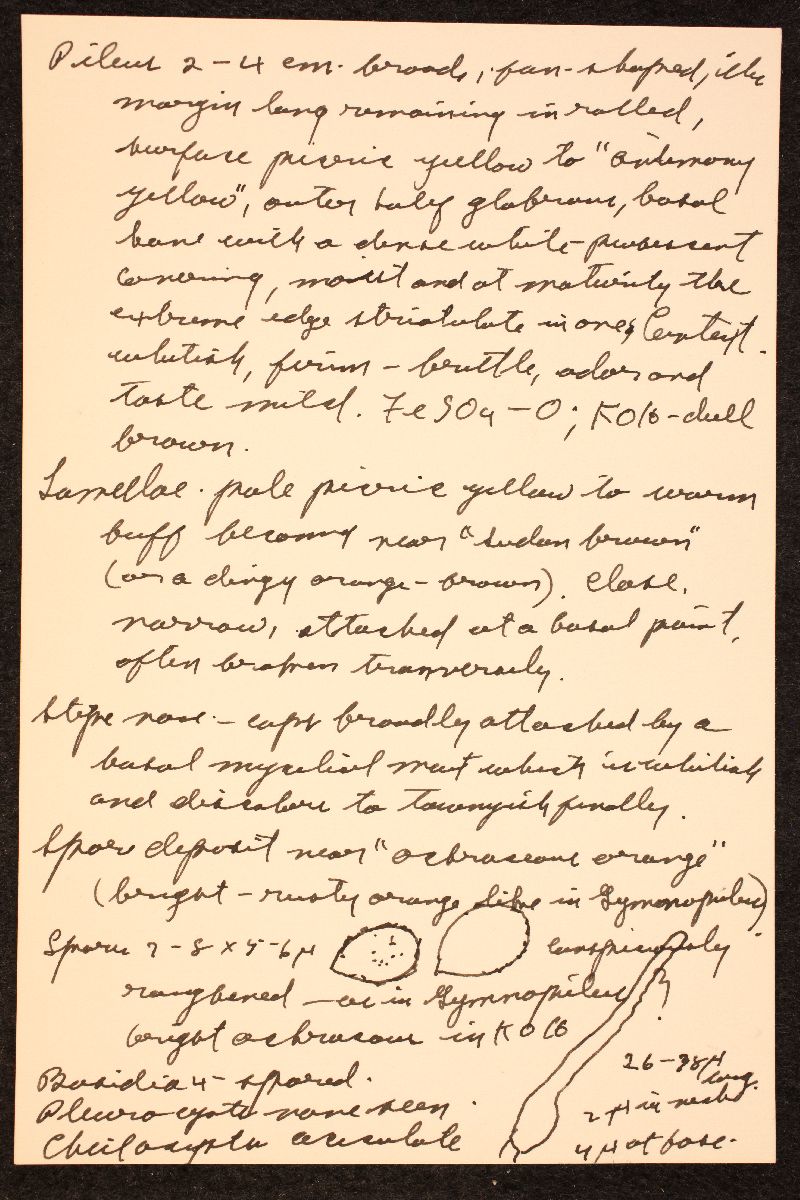 Pileus 2-4 cm. broad, fan-shaped, the
margin long remaining inrolled,
surface picric yellow to "antimony
yellow", outer half glabrous, basal
half with a dense white-pubescent
covering, moist and at maturity the
extreme edge striatulate in ones, Context
whitish, firm-brittle, odor and
taste mild. FeSO4-O; KOH-dull
brown.
Lamellae. pale picric yellow to warm
buff becoming near "sudan brown"
(or a dingy orange-brown). Close,
narrow, attached at a basal point,
often broken transversely.
Stipe none - caps broadly attached by a
basal mycelial mat which is whitish
and discolors to tawnyish finally.
Spore deposit near "ochraceous orange"
(bright-rusty orange like in Gymnopilus)
Spores 7-8 x 5-6 µ conspicuously
roughened - as in Gymnopilus
bright ochraceous in KOH
Basidia 4-spored.
26-38 µ long.
Pleurocysts none seen.
2 µ in neck
Cheilocysts aciculate
4 µ at base.